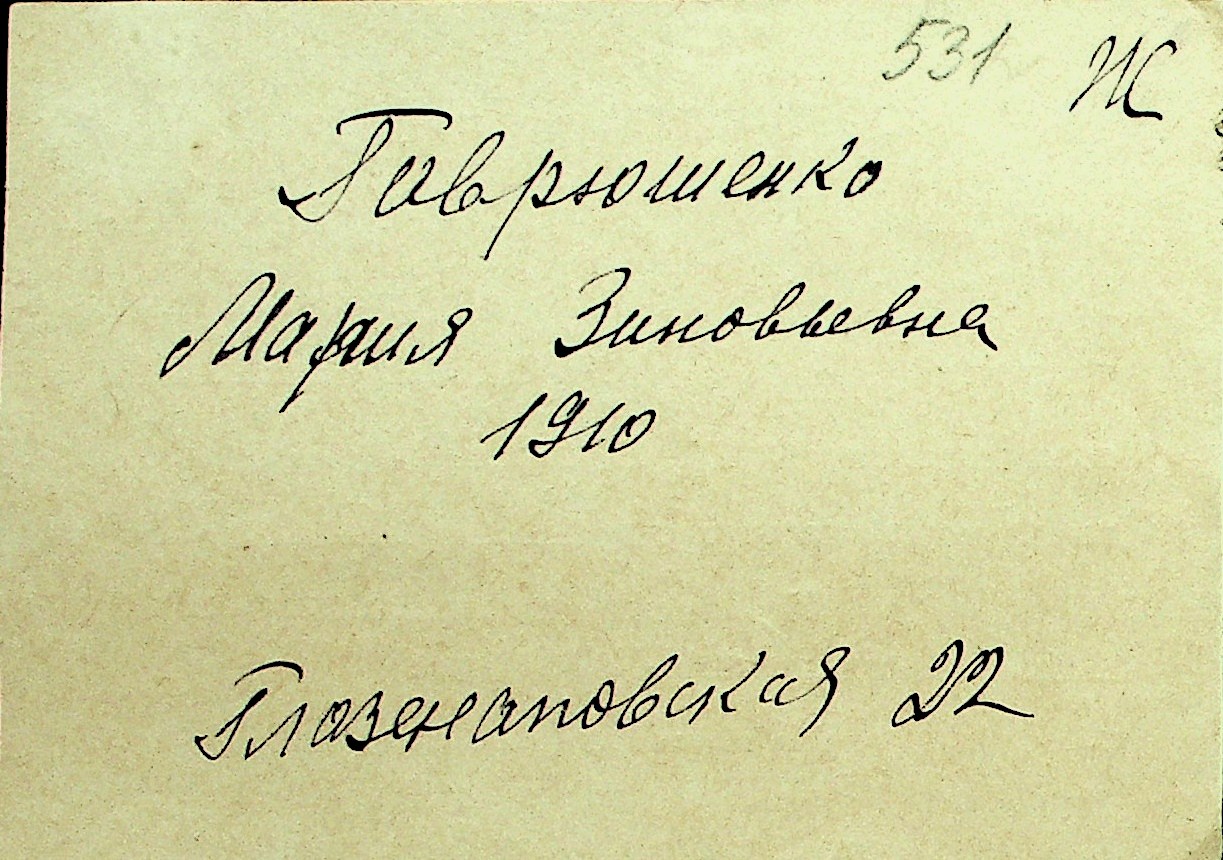 531 Ж
Гаврюшенко
Мария Зиновьевна
1910
Глазенаповская 22